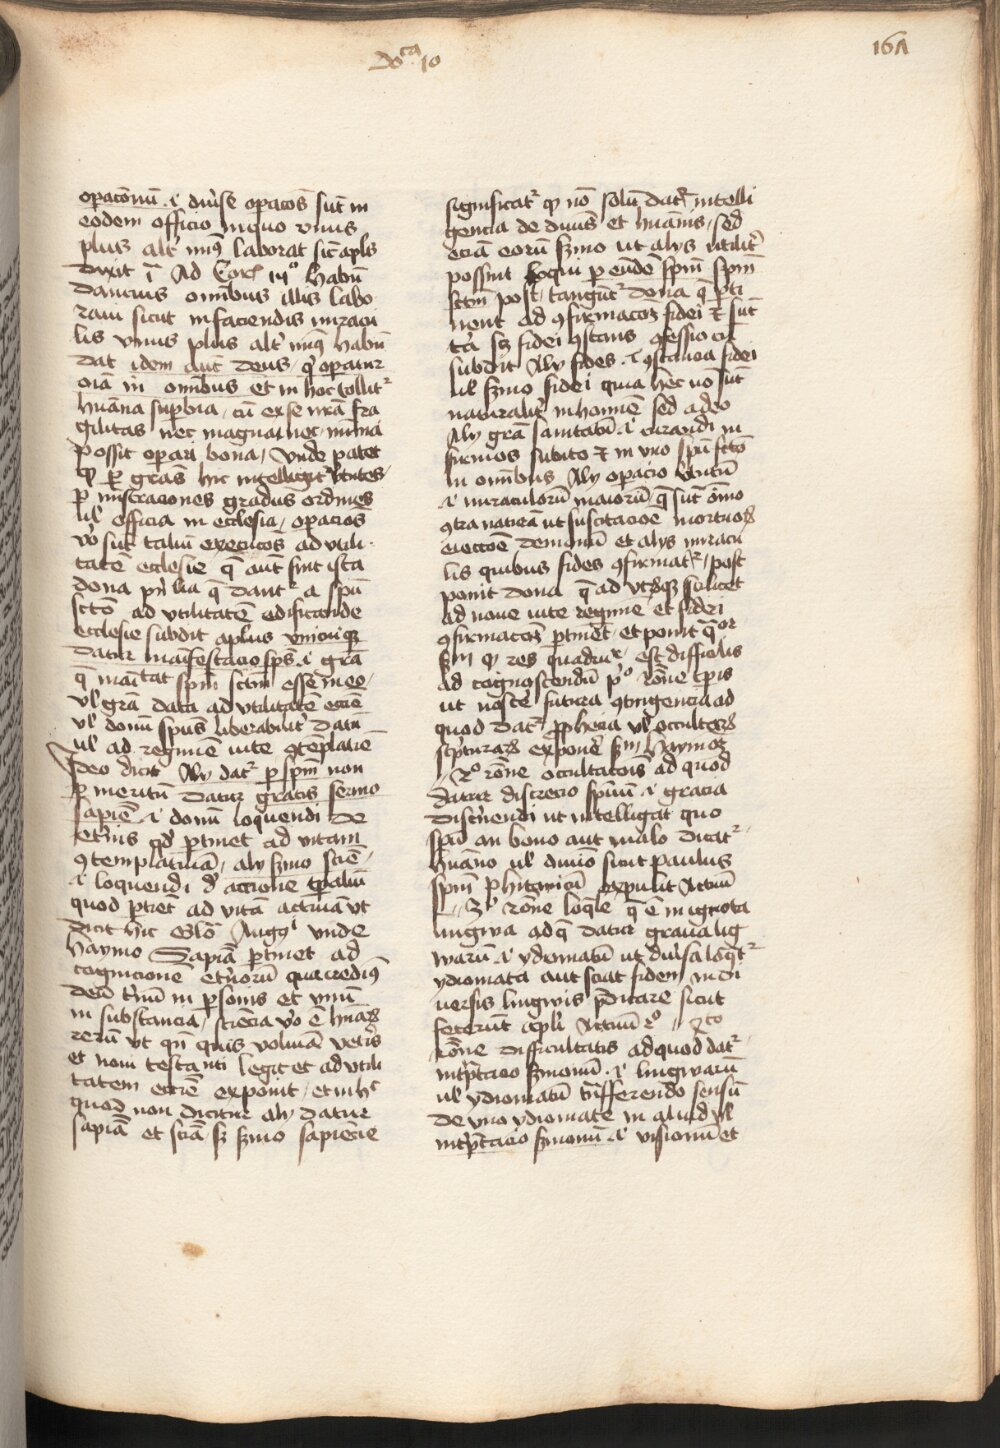 Do^ca 10
161
operacōnū .i. diu̾se operacōs sūt in
eodem officio in quo vnus
plus alt̾ minꝰ laborat sic̄ apl̄s
dixit i Ad Corⁱ
danciꝰ omnibus illis labo
raui sicut in faciendis miracu
lis vnus plus alt̾ minꝰ habu
dat idem aūt deus qͥ operatur
oīa in omnibus Et in hoc tollitᷣ
hūana supbia cū ex se nr̄a fra
gilitas nec magna nec minīa
possit operari bona / Vnde patet
ꝙ ꝑ gr̄as hic intelligitᷣ v̾tutes
ꝑ mīstraciones gradus ordines
ul̾ officia in ecclesia / operacōs
v̾o sūt taliū execucōs ad vtili
tatē ecclesie q̄ aūt sint ista
dona q̄ dantᷣ a spū
sct̄o ad vtilitatē edificande
ecclesie subdit apl̄us vnicuiqꝫ
datur mānifestacio spūs .i. gr̄a
q̄ māītat spm̄ sctm̄ esse in eo
ul̾ gr̄a data ad vtilitatē ecc̄ie
ul̾ donū spūs liberabilit̾ datū
ul̾ ad regimē vite ꝯtēplatiē
Ideo dicit Alij datᷣ ꝑ spm̄ non
ꝑ meritū datur gracis sermo
sapiē .i. donū loquendi de
et̾nis qd̾ ꝑtinet ad vitam
ꝯtemplatiuā / alij s̾mo sciē
.i. loquendi d̾ accione tp̄aliū
quod ꝑtiet̄ ad vitā actiuā vt
dicit hic Glō Augᷤⁱ vnde
haymo Sapiā ꝑtinet ad
cognicionē et̾norū qua credimꝰ
deū t̾nū in ꝑsonis et vnū
in substancia / sciēcia v̾o ē hūaꝝ
rerū vt qn̄ quis volumā vet̾is
et noui testamti legit et ad vtili
tatem ecc̄ie exponit / et in hᶜ
quod non dicitur alij datur
sapiā et sciā sꝫ s̾mo sapiēcie
significatᷣ ꝙ nō solū datᷣ intelli
gencia de diuīs et hūanis / sed
eciā eorū s̾mo ut alijs vtilit̾
possint loqui ꝑ eūdē spm̄ Spm̄
sctm̄ post / tangūtᷣ dona q̄ ꝑti
nent ad ꝯfirmacōꝫ fidei ⁊ sūt
t̾ia scꝫ fidei ꝯstans ꝯfessio cū
subdit Alij fides .i. ꝯstancia fidei
ul̾ s̾mo fidei quia hec nō sūt
naturalit̾ in homīe sed a deo
Alij grā sanitatū .i. curandi in
firmos subito ⁊ in vno spū sct̄o
In omnibus Alij opacio v̾tutū
.i. miraculorū maiorū q̄ sūt ōnīo
ꝯtra naturā ut suscitacōe mortuoꝝ
eieccōē demonū et alijs miracu
lis quibus fides ꝯfirmatᷣ / post
ponit dona q̄ ad vt̾qꝫ scilicet
ad noue vite regimē et fidei
ꝯfirmacōꝫ ꝑtinēt et ponit q̄ᵒʳ
s̾m ꝙ res quadru^r est difficilis
ad cognoscendū pᵒ rōne tp̄is
ut nosce̾ futura ꝯtingencia ad
quod datᷣ ꝓphecia ul̾ occultoꝝ
sc̾pturaꝝ exponē s̾m haymoꝫ
/ 2ᵒ rōne occultacōis ad quod
datur discrecio spūum .i. gracia
disc̾nendi ut intelligat quo
spū an bono aut malo dicatᷣ
hūano ul̾ diuīo sicut paulus
spm̄ phitonicū expulit Actuū
3ᵒ rōne loq̄le q̄ ē in ignota
lingwa ad q̄ datur genera lig
waru .i. ydiomatū ut diu̾sa loq̄tᷣ
ydiomata aut sciat fidem in di
uersis lingwis p̄dicare sicut
fecerūt apl̄i Actuū 2ᵒ / 4to
rōne difficultatis ad quod datᷣ
int̾p̄tacio s̾monū .i. lingwarū
ul̾ ydiomatū tn̄sferendo sensū
de vno ydiomate in aliud ul̾
int̾p̄tacio s̾monū .i. visionū et